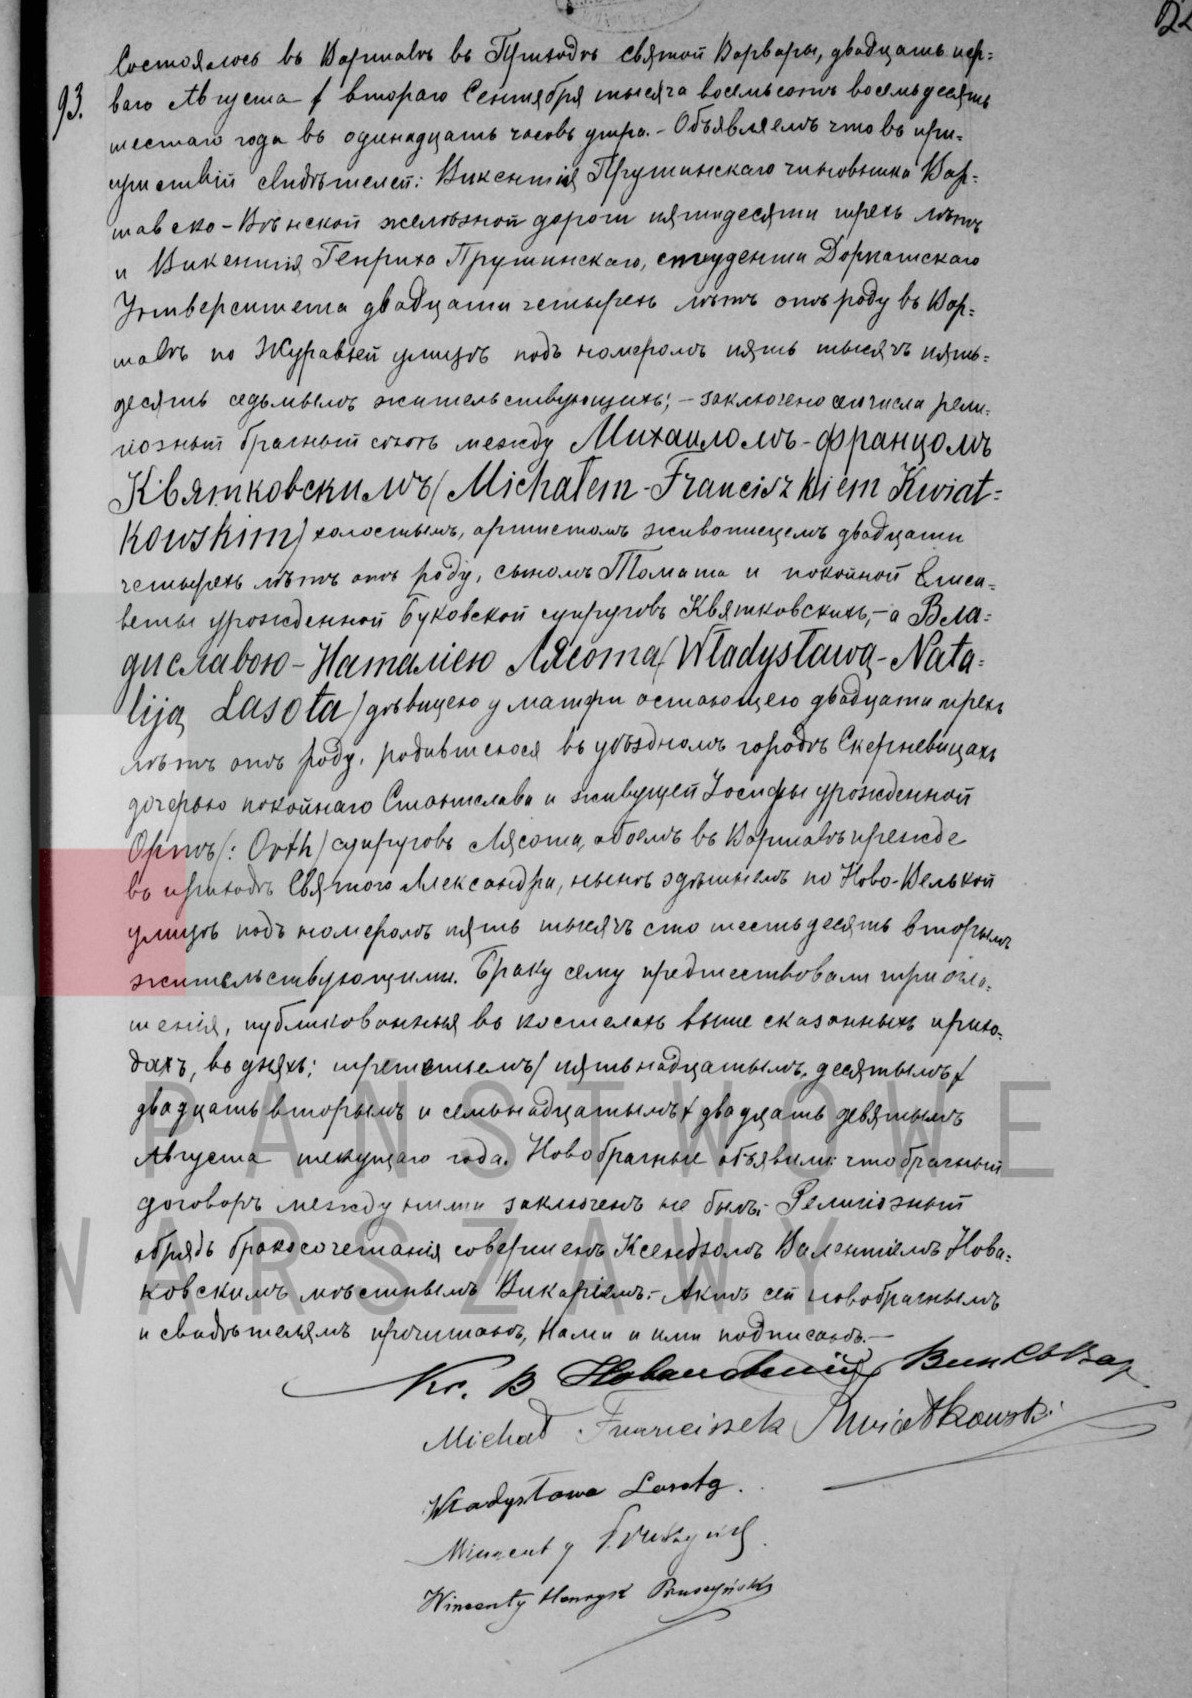 93.
Состоялось въ Варшавѣ въ Приходѣ святой Варвары, двадцать пер=
ваго Августа / втораго Сентября тысяча восемьсотъ восемьдесять
шестаго года въ одинадцать часовъ утра. - Объявляемъ что въ при=
сутствіи свидѣтелей: Викентія Прушинскаго чиновника Вар=
шавско-Вѣнской желѣзной дороги пятидесяти трехъ лѣтъ
и Викентія Генриха Прушинскаго, студента Дорпатскаго
Университета двадцати четырехъ лѣтъ отъ роду въ Вар=
шавѣ по Журавьей улицѣ подъ номеромъ пять тысячъ пять=
десять седьмымъ жительствующихъ; - заключено сего числа рели=
гіозный брачный союзъ между Михаиломъ-Францомъ
Квятковскимъ /Michałem-Franciszkiem Kwiat=
kowskim/ холостымъ, артистомъ живописцемъ двадцати
четырехъ лѣтъ отъ роду, сыномъ Томаша и покойной Елиса=
веты урожденной Буковской супруговъ Квятковскихъ, - а Вла=
диславою-Наталіею Лясота /Władysławą-Nata=
liją Lasota/ дѣвицею у матери остающею двадцати трехъ
лѣтъ отъ роду, родившеюся въ уѣздномъ городѣ Скерневицахъ
дочерью покойнаго Станислава и живущей Іосифы урожденной
Ортъ /: Orth / супруговъ Лясота, обоемъ въ Варшавѣ прежде
въ приходѣ Святого Александра, нынѣ здѣшнемъ по Ново-Велькой
улицѣ подъ номеромъ пять тысячъ сто шестьдесять вторымъ
жительствующими. Браку сему предшествовали три огла=
шенія, публикованныя въ костелахъ выше сказанныхъ прихо=
дахъ, въ дняхъ: третьемъ / пятьнадцатымъ, десятымъ /
двадцать вторымъ и семьнадцатымъ / двадцать девятымъ
Августа текущаго года. Новобрачные объявили что брачный
договоръ между ними заключенъ не былъ: Религіозный
обрядъ бракосочетанія совершенъ Ксендзомъ Валентіемъ Нова=
ковскимъ мѣстнымъ Викаріемъ. - Актъ сей новобрачнымъ
и свидѣтелямъ прочитанъ, Нами и ими подписанъ. -
Кс. В Новаковскій Вик
Michał Franciszek Kwiatkowski
Władysława Lasota.
Wincenty Pruszyński
Wincenty Henryk Pruszyński
PAŃSTWOWE
WARSZAWY